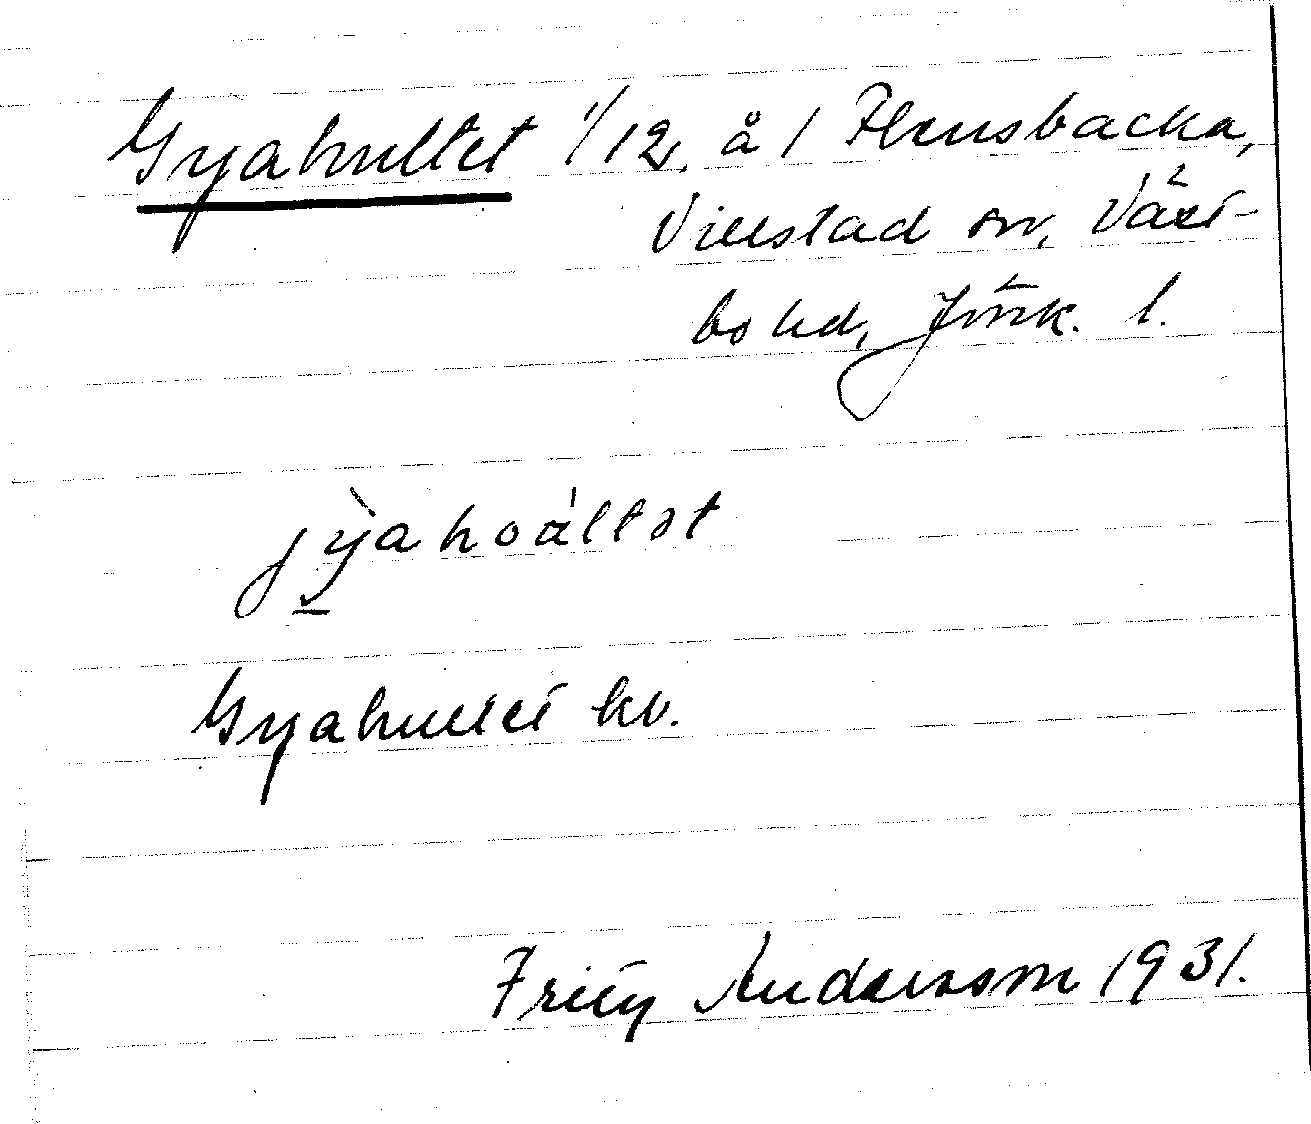 Gyahultet 1/12, å 1 Flensbacka,
Villstad sn, Väst-
bo hd, Jönk. l.
jỳ̠ahoáltət
Gyahultet kv.
Fritz Andersson 1931.